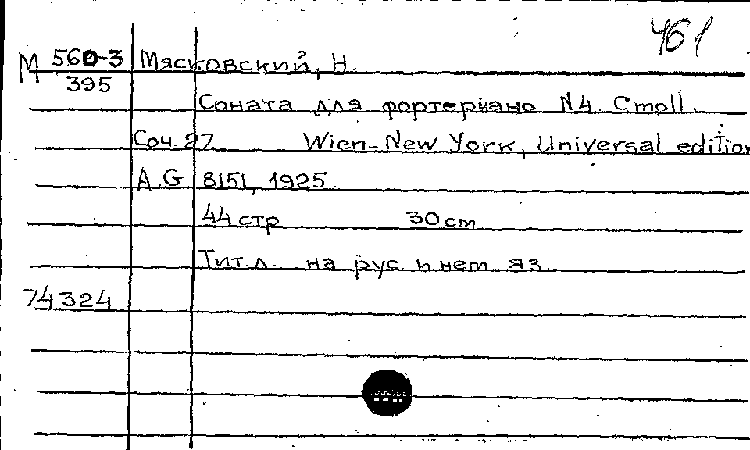 461
М 560-3 Мясковский, Н.
395
Соната для фортепиано N4. Cmoll.
Соч. 27. Wien-New York, Universal edition
A.G. 8151, 1925.
44 стр 30 cm
Тит.л. на рус. и нем яз.
74324